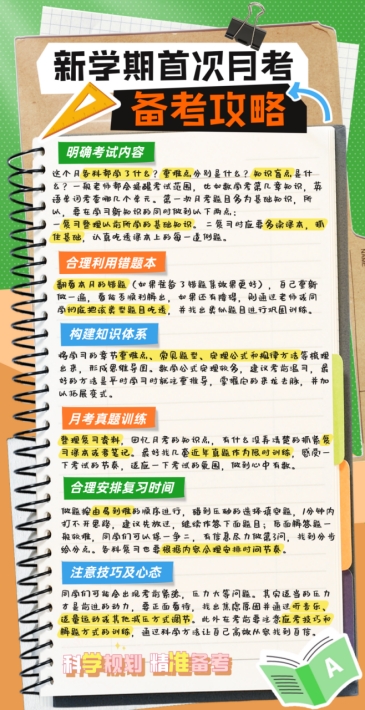 新学期首次月考
备考攻略
明确考试内容
这个月各科都学了什么？重难点分别是什么？知识盲点是什
么？一般老师都会提醒考试范围，比如数学考第几章知识，英
语单词考查哪几个单元。第一次月考题目多为基础知识，所
以，要在学习新知识的同时做到以下两点：
一复习整理以前所学的基础知识。二复习时应要多读课本，抓
住基础，认真吃透课本上的每一道例题。
合理利用错题本
翻看本月的错题（如果准备了错题集效果更好），自己重新
做一遍，看能否顺利解出，如果还有障碍，则通过老师或同
学彻底把该类型题目吃透，并找出类似题目进行巩固训练。
构建知识体系
将学习的章节重难点、常见题型、定理公式和规律方法等梳理
出来，形成思维导图。数学公式定理较多，建议考前温习，最
好的方法是平时学习时就注重推导，掌握它的来龙去脉，并加
以拓展变式。
月考真题训练
整理复习资料，回忆月考的知识点，有什么没弄清楚的抓紧复
习课本或者笔记。最好找几套近年真题作为限时训练，感受一
下考试的节奏，适应一下考试的氛围，做到心中有数。
合理安排复习时间
做题按由易到难的顺序进行，碰到压轴的选择填空题，1分钟内
打不开思路，建议先放过，继续作答下面题目；后面解答题一
般较难，同学们可以保一争二，有信息尽力做第3问，找到分步
给分点。各科复习也要根据内容合理安排时间节奏。
注意技巧及心态
同学们可能会出现考前紧张，压力大等问题。其实适当的压力
才是前进的动力，要正面看待，找出焦虑原因并通过听音乐、
适量运动或其他减压方式调节。此外在考前要注意应考技巧和
解题方式的训练，通过科学方法让自己高效作答找到自信。
科学规划 精准备考
A